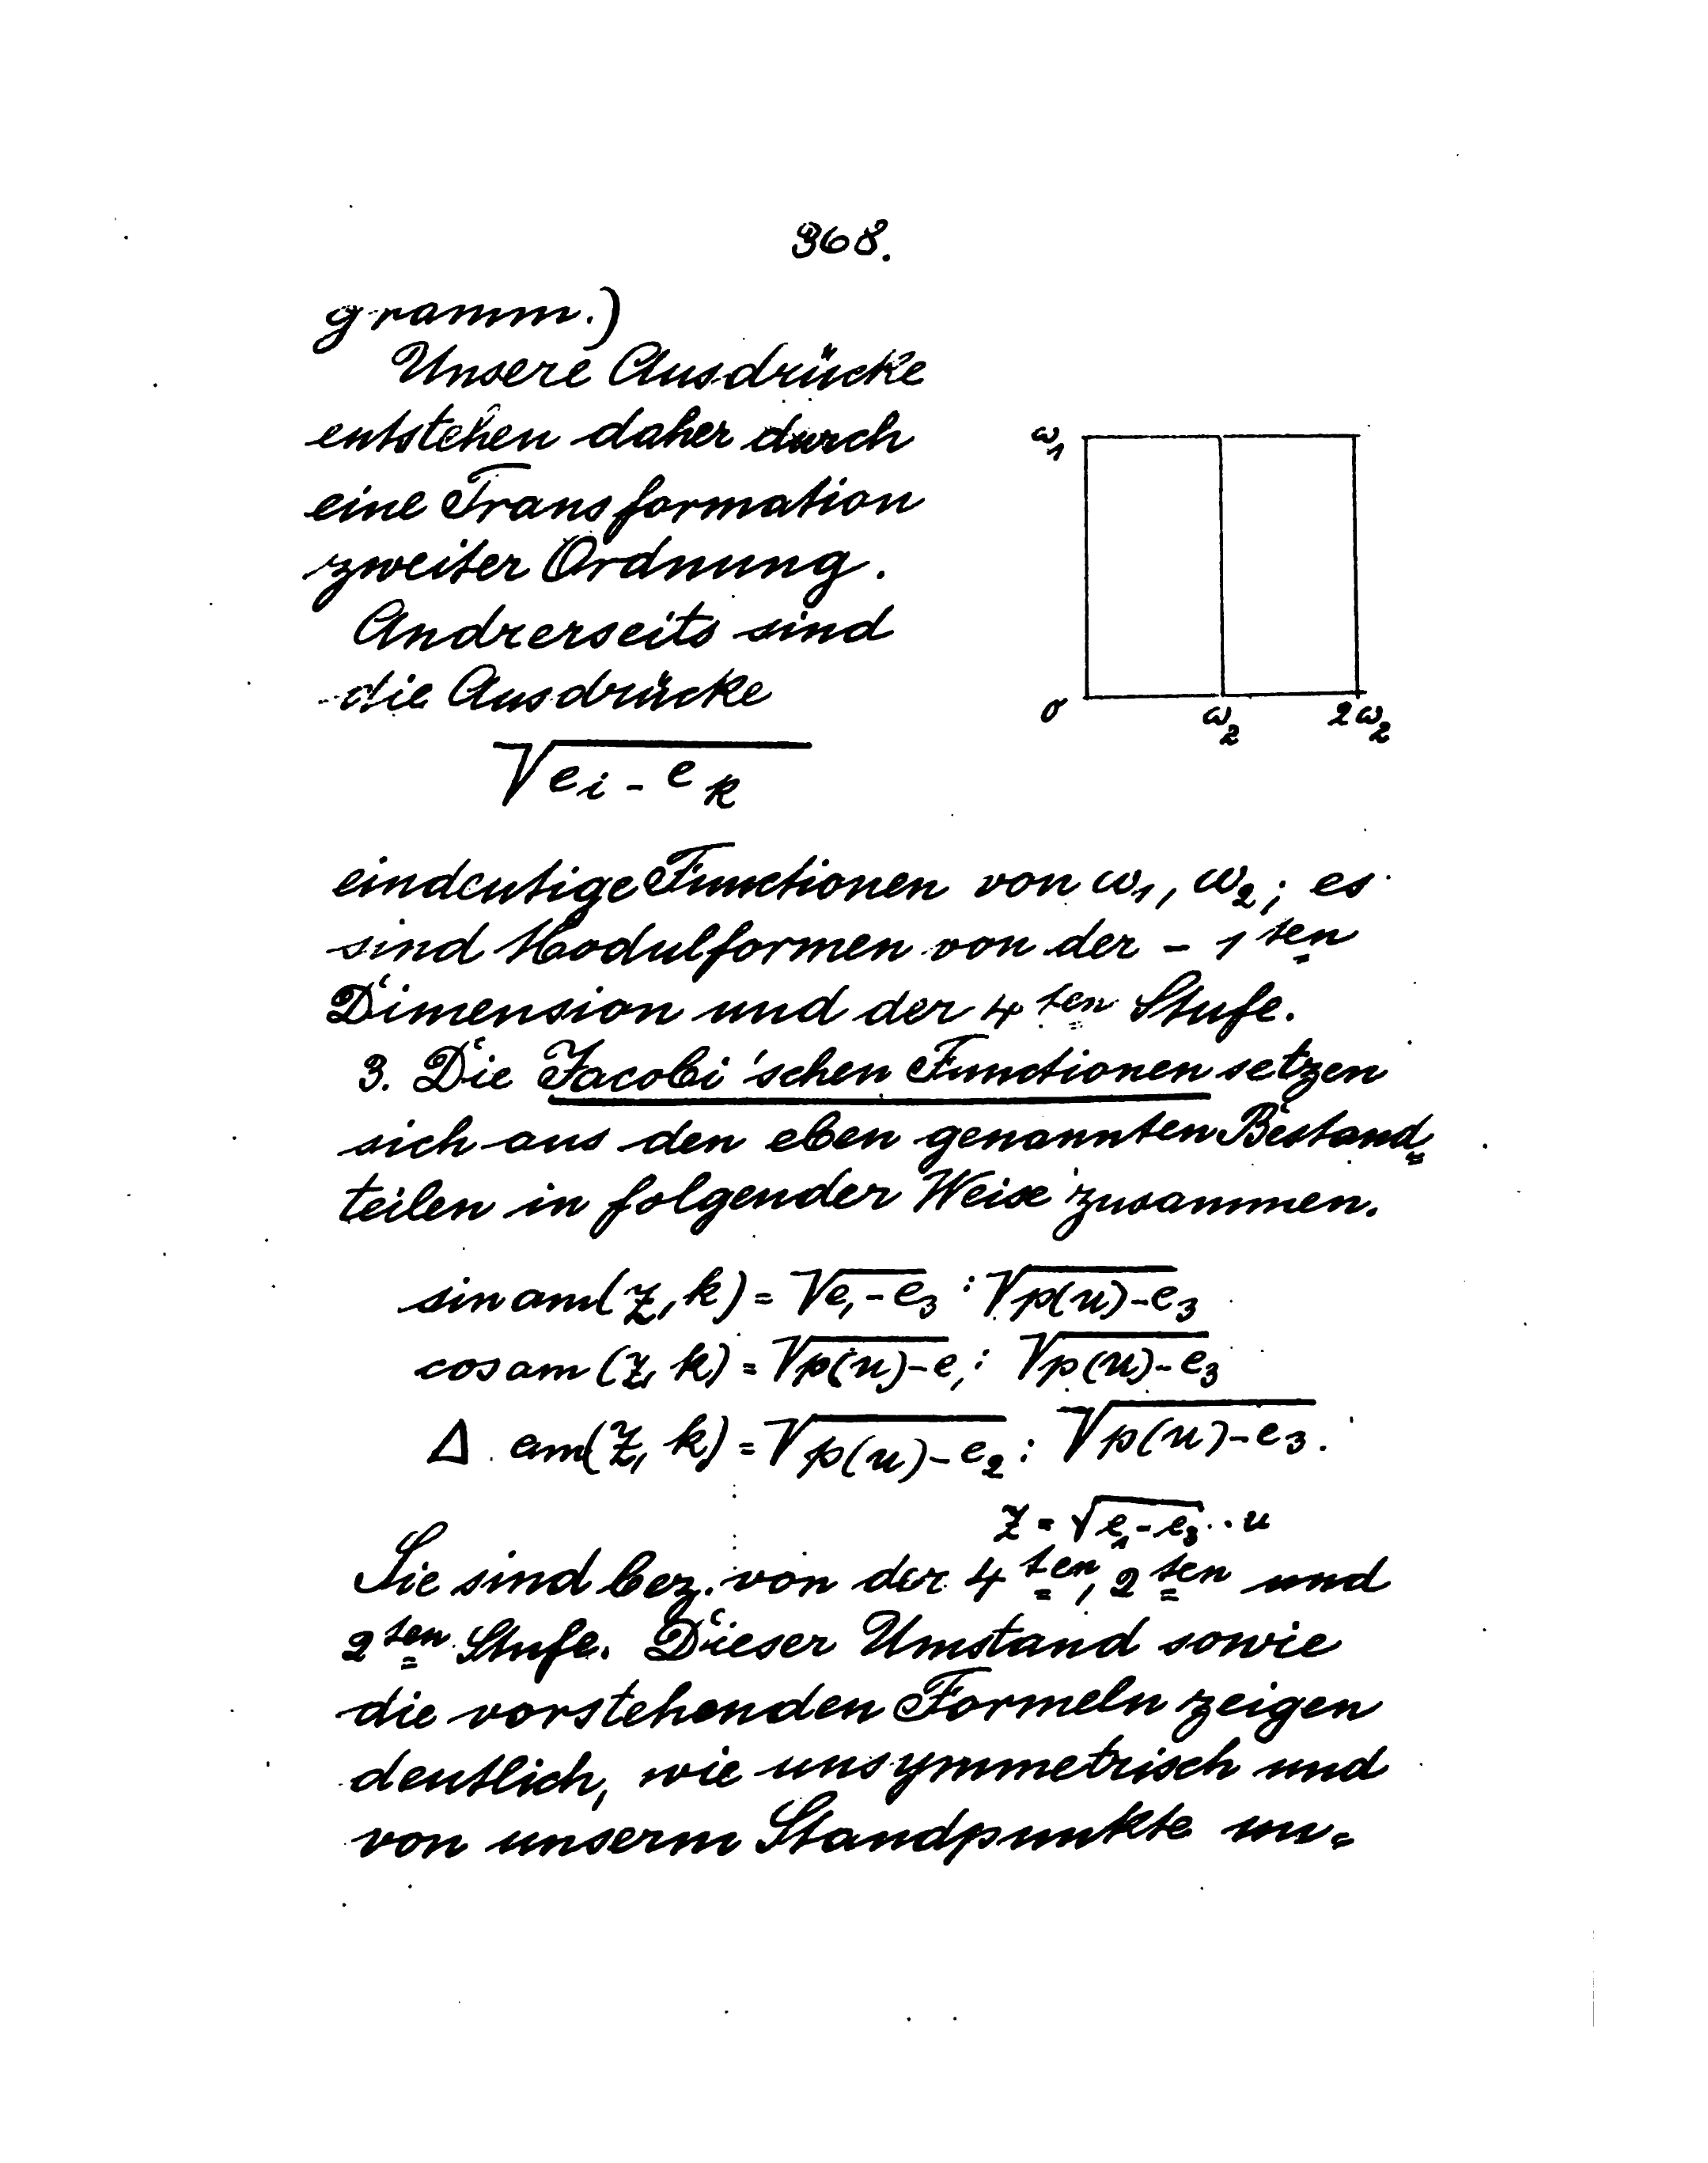 368.
gramm.)
Unsere Ausdrücke
entstehen daher durch
eine Transformation
zweiter Ordnung.
Andrerseits sind
die Ausdrücke
ω₁
0 ω₂ 2ω₂
√(eᵢ - eₖ)
eindeutige Functionen von ω₁, ω₂; es
sind Modulformen von der - 1ten
Dimension und der 4ten Stufe.
3. Die Jacobi'schen Functionen setzen
sich aus den eben genannten Bestand=
teilen in folgender Weise zusammen.
sin am(z, k) = √(e₁-e₃) : √(p(u)-e₃)
cos am (z, k) = √(p(u)-e₁) : √(p(u)-e₃)
Δ am(z, k) = √(p(u)-e₂) : √(p(u)-e₃).
z = √(e₁-e₃) · u
Sie sind bez. von der 4ten, 2ten und
2ten Stufe. Dieser Umstand sowie
die vorstehenden Formeln zeigen
deutlich, wie unsymmetrisch und
von unserm Standpunkte un=